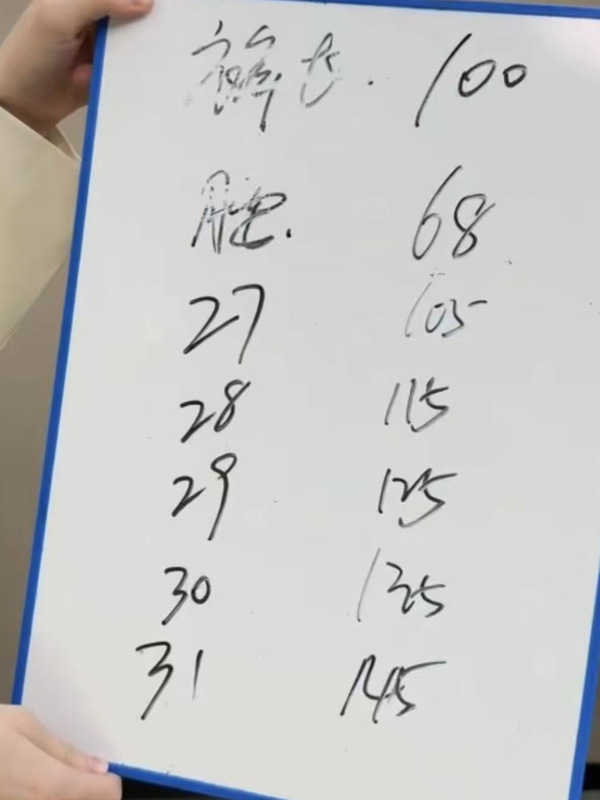 裤长. 100
68
27 105
28 115
29 125
30 135
31 145